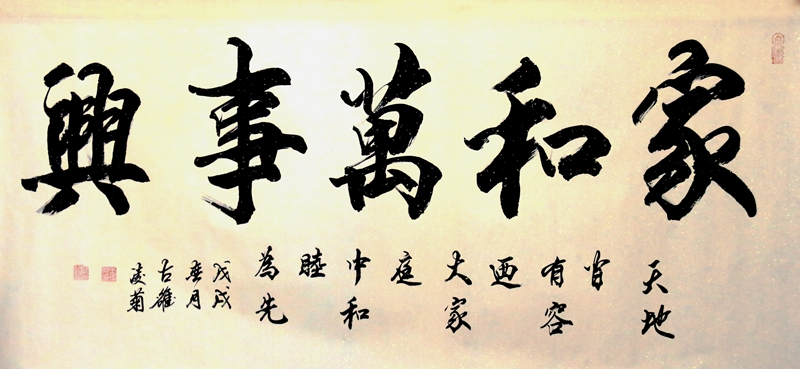 家和萬事興
天地
皆
有容
迺
大家
庭
中和
睦
為先
戊戌
月
古雄
凌菊